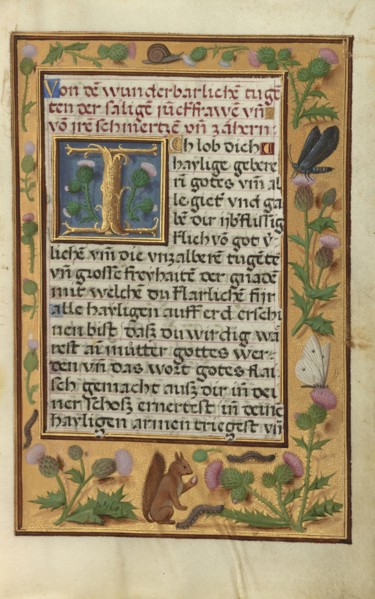 Von dē wunderbarlichē tugē
ten der saligē jūckfrawē vn̄
vō jrē schmertzē vn̄ zähern:
Ich lob dich
haylige gebere
rī gotes vm̄ al
le giet vnd ga
bē dir
klich vō got v̈
lichē vm̄ die vnzalberē tugētē
vn̄ grosse freyhaitē der gnadē
mit welchē du klarlichē fijr
alle hayligen auff erd erschi
nen bist daß du wirdig wa
rest ain mūtter gottes wer-
den vn̄ das wort gotes flai
sch gemacht ausz dir in̄ dei
ner schosz ernertest in̄ deinē
hayligen armen triegest vn̄